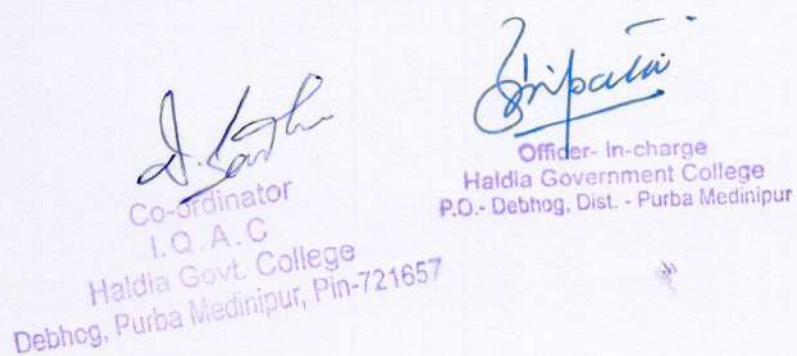 Co-ordinator
I.Q.A.C
Haldia Govt. College
Debhog, Purba Medinipur, Pin-721657
Officer- In-charge
Haldia Government College
P.O.- Debhog, Dist. - Purba Medinipur